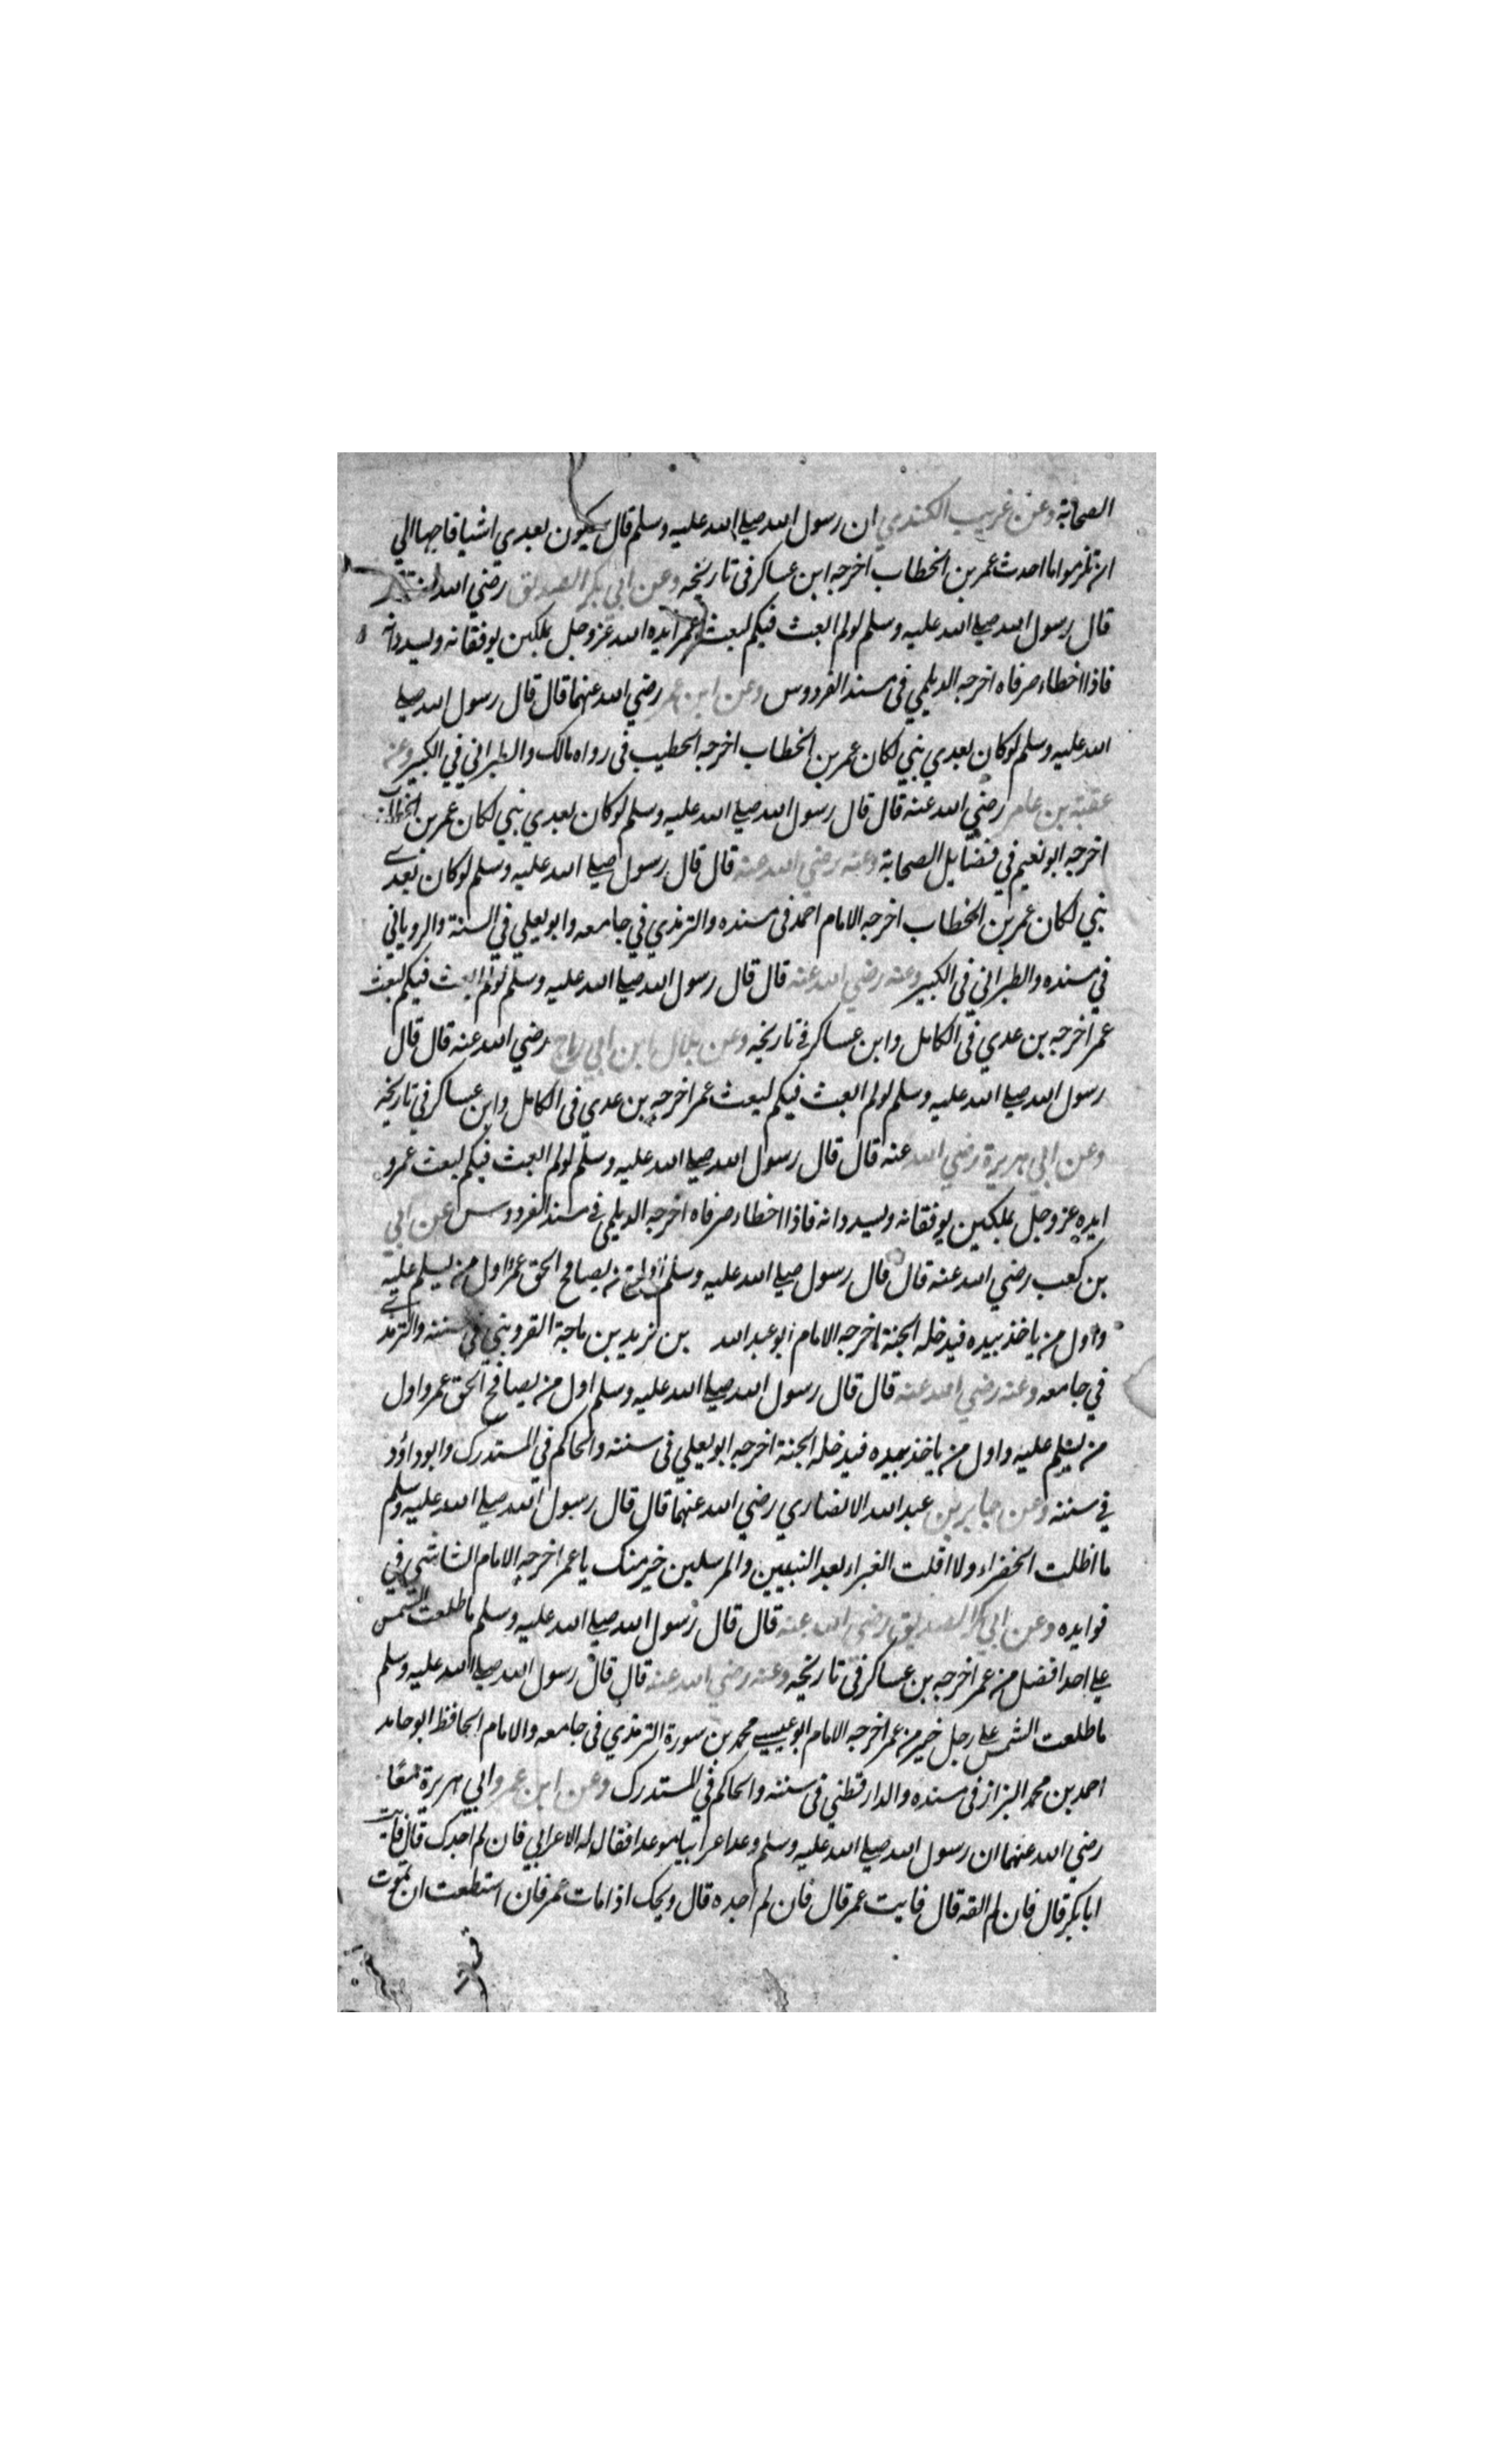 الصحابة وعن غريب الكندي ان رسول الله صلي الله عليه وسلم قال سيكون بعدي اشيا فاحبها الي
ان تلزموا ما احدث عمر بن الخطاب اخرجه ابن عساكر في تاريخه وعن ابي بكر الصديق رضي الله
قال رسول الله صلي الله عليه وسلم لو لم ابعث فيكم لبعث عمر ايده الله عز وجل بملكين يوفقانه ويسددانه
فاذا اخطاء صرفاه اخرجه الديلمي في مسند الفردوس وعن ابن عمر رضي الله عنهما قال قال رسول الله صلي
الله عليه وسلم لو كان بعدي نبي لكان عمر بن الخطاب اخرجه الخطيب في رواه مالك والطبراني في الكبير وعن
عقبة بن عامر رضي الله عنه قال قال رسول الله صلي الله عليه وسلم لو كان بعدي نبي لكان عمر بن الخطاب
اخرجه ابو نعيم في فضايل الصحابة وعنه رضي الله عنه قال قال رسول صلي الله عليه وسلم لو كان بعدي
نبي لكان عمر بن الخطاب اخرجه الامام احمد في مسنده والترمذي في جامعه وابو يعلي في السنة والروياني
في مسنده والطبراني في الكبير وعنه رضي الله عنه قال قال رسول الله صلي الله عليه وسلم لو لم ابعث فيكم لبعث
عمر اخرجه بن عدي في الكامل وابن عساكر في تاريخه وعن بلال ابن ابي رباح رضي الله عنه قال قال
رسول الله صلي الله عليه وسلم لو لم ابعث فيكم لبعث عمر اخرجه بن عدي في الكامل وابن عساكر في تاريخه
وعن ابي هريرة رضي الله عنه قال قال رسول الله صلي الله عليه وسلم لو لم ابعث فيكم لبعث عمر و
ايده عز وجل بملكين يوفقانه ويسددانه فاذا اخطاء صرفاه اخرجه الديلمي في مسند الفردوس عن ابي
بن كعب رضي الله عنه قال قال رسول صلي الله عليه وسلم اول من يصافح الحق عمر واول من يسلم عليه
واول من ياخذ بيده فيدخله الجنة اخرجه الامام ابو عبد الله بن يزيد بن ماجة القزويني في سننه والترمذي
في جامعه وعنه رضي الله عنه قال قال رسول الله صلي الله عليه وسلم اول من يصافح الحق عمر واول
من يسلم عليه واول من ياخذ بيده فيدخله الجنة اخرجه ابو يعلي في سننه والحاكم في المستدرك وابو داؤد
في سننه وعن جابر بن عبد الله الانصاري رضي الله عنهما قال قال رسول الله صلي الله عليه وسلم
ما اظلت الخضراء ولا اقلت الغبراء بعد النبيين والمرسلين خير منك يا عمر اخرجه الامام الشاشي في
فوايده وعن ابي بكر الصديق رضي الله عنه قال قال رسول الله صلي الله عليه وسلم ما طلعت الشمس
علي احد افضل من عمر اخرجه بن عساكر في تاريخه وعنه رضي الله عنه قال قال رسول الله صلي الله عليه وسلم
ما طلعت الشمس علي رجل خير من عمر اخرجه الامام ابو عيسي محمد بن سورة الترمذي في جامعه والامام الحافظ ابو حامد
احمد بن محمد البزاز في مسنده والدارقطني في سننه والحاكم في المستدرك وعن ابن عمر وابي هريرة معًا
رضي الله عنهما ان رسول الله صلي الله عليه وسلم وعد اعرابيا موعدا فقال له الاعرابي فان لم اجدك قال فايت
ابا بكر قال فان لم القه قال فايت عمر قال فان لم اجده قال ويحك اذا مات عمر فان استطعت ان تموت